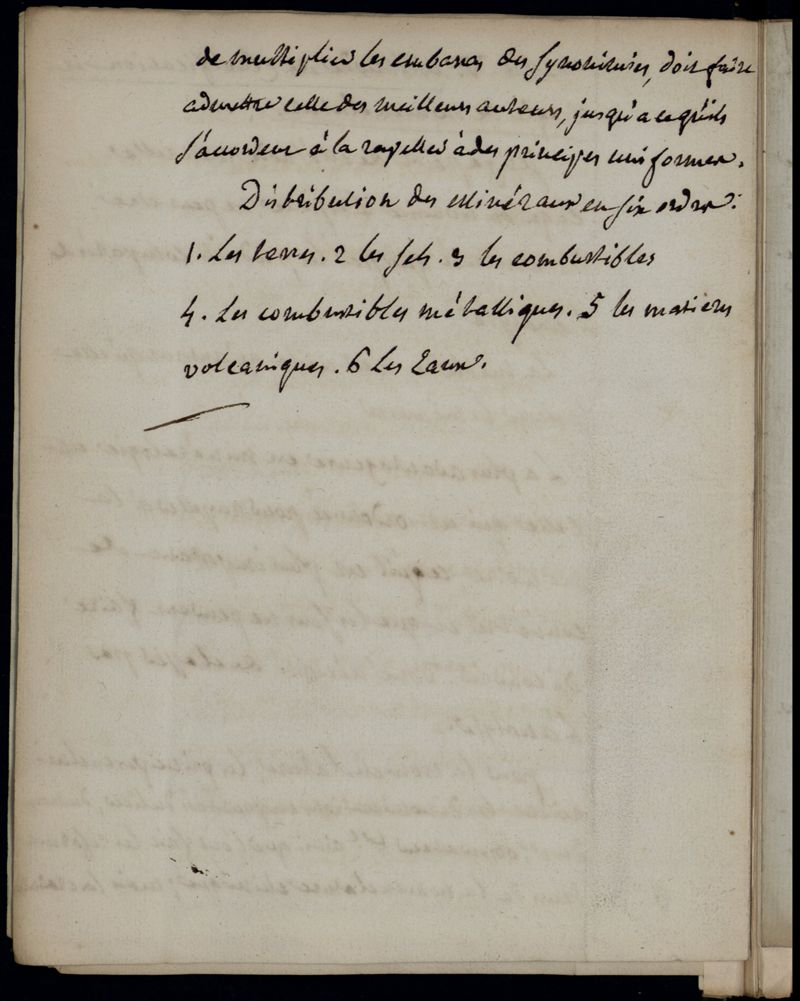 de multiplier les embaras des synonimies, doit faire
admettre celle des meilleurs auteurs, jusqu'a ce qu'ils
s'acordent à la rapeller à des principes uniformes.
Distribution des minéraux en six ordres:
1. Les terres. 2 les sels. 3 les combustibles
4. Les combustibles métalliques. 5 les matieres
volcaniques. 6 Les Eaux.